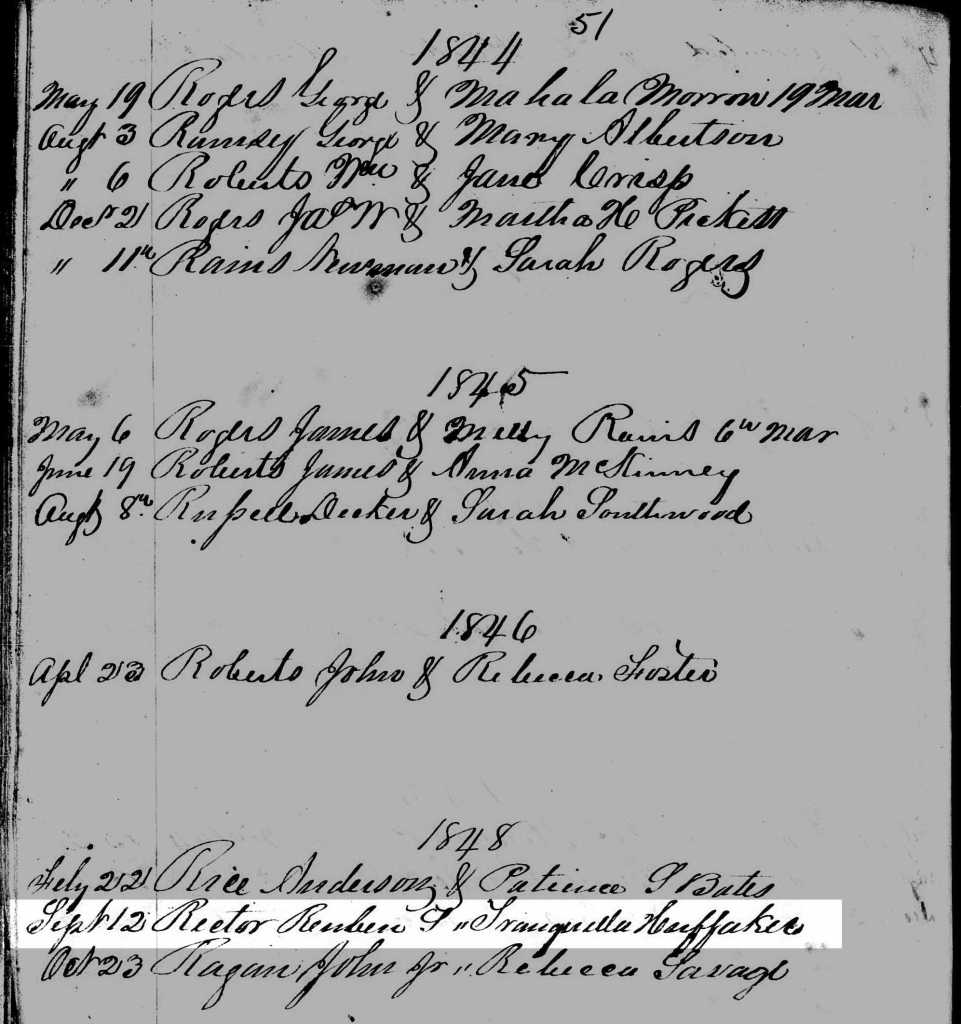 51
1844
May 19 Rogers George & Mahala Morrow 19 Mar
Augt 3 Ramsey George & Mary Albertson
" 6 Roberts Wm & Jane Crisp
Decr 21 Rogers Jas W & Martha H Pickett
" 11th Rains Newman & Sarah Rogers
1845
May 6 Rogers James & Melly Rains 6th Mar
June 19 Roberts James & Anna McKinney
Augt 8th Russell Decker & Sarah Southwood
1846
Apl 23 Roberts John & Rebecca Foster
1848
Feby 22 Rice Anderson & Patience S Bates
Sept 12 Rector Reuben T " Tranquilla Huffaker
Oct 23 Ragan John Jr " Rebecca Savage